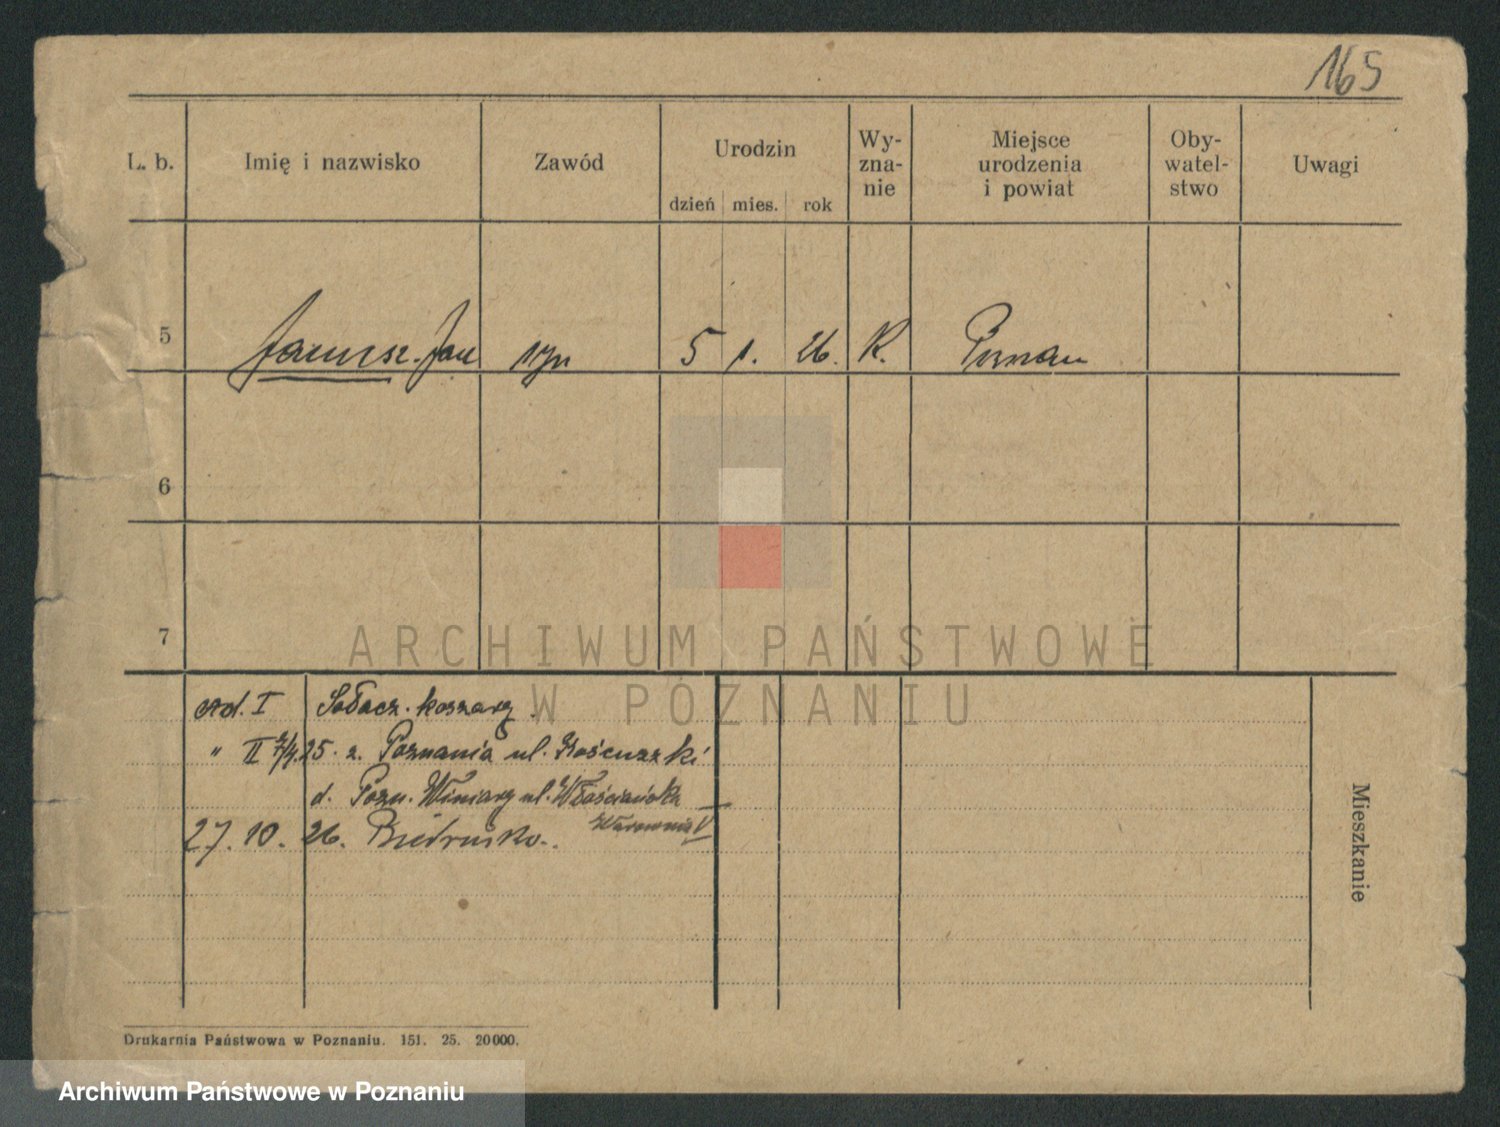 165
L. b. Imię i nazwisko Zawód Urodzin dzień mies. rok Wy-znanie Miejsce urodzenia i powiat Oby-watel-stwo Uwagi
5 Janusz Jan syn 5 1. 26. K. Poznan
6
7
ARCHIWUM PAŃSTWOWE
W POZNANIU
ad. I Sołacz. koszary.
" II 7/4.25. z. Poznania ul. Kościuszki
d. Pozn. Winiary ul. Włościańska
27. 10. 26. Biedrusko.
Mieszkanie
Drukarnia Państwowa w Poznaniu. 151. 25. 20000.
Archiwum Państwowe w Poznaniu